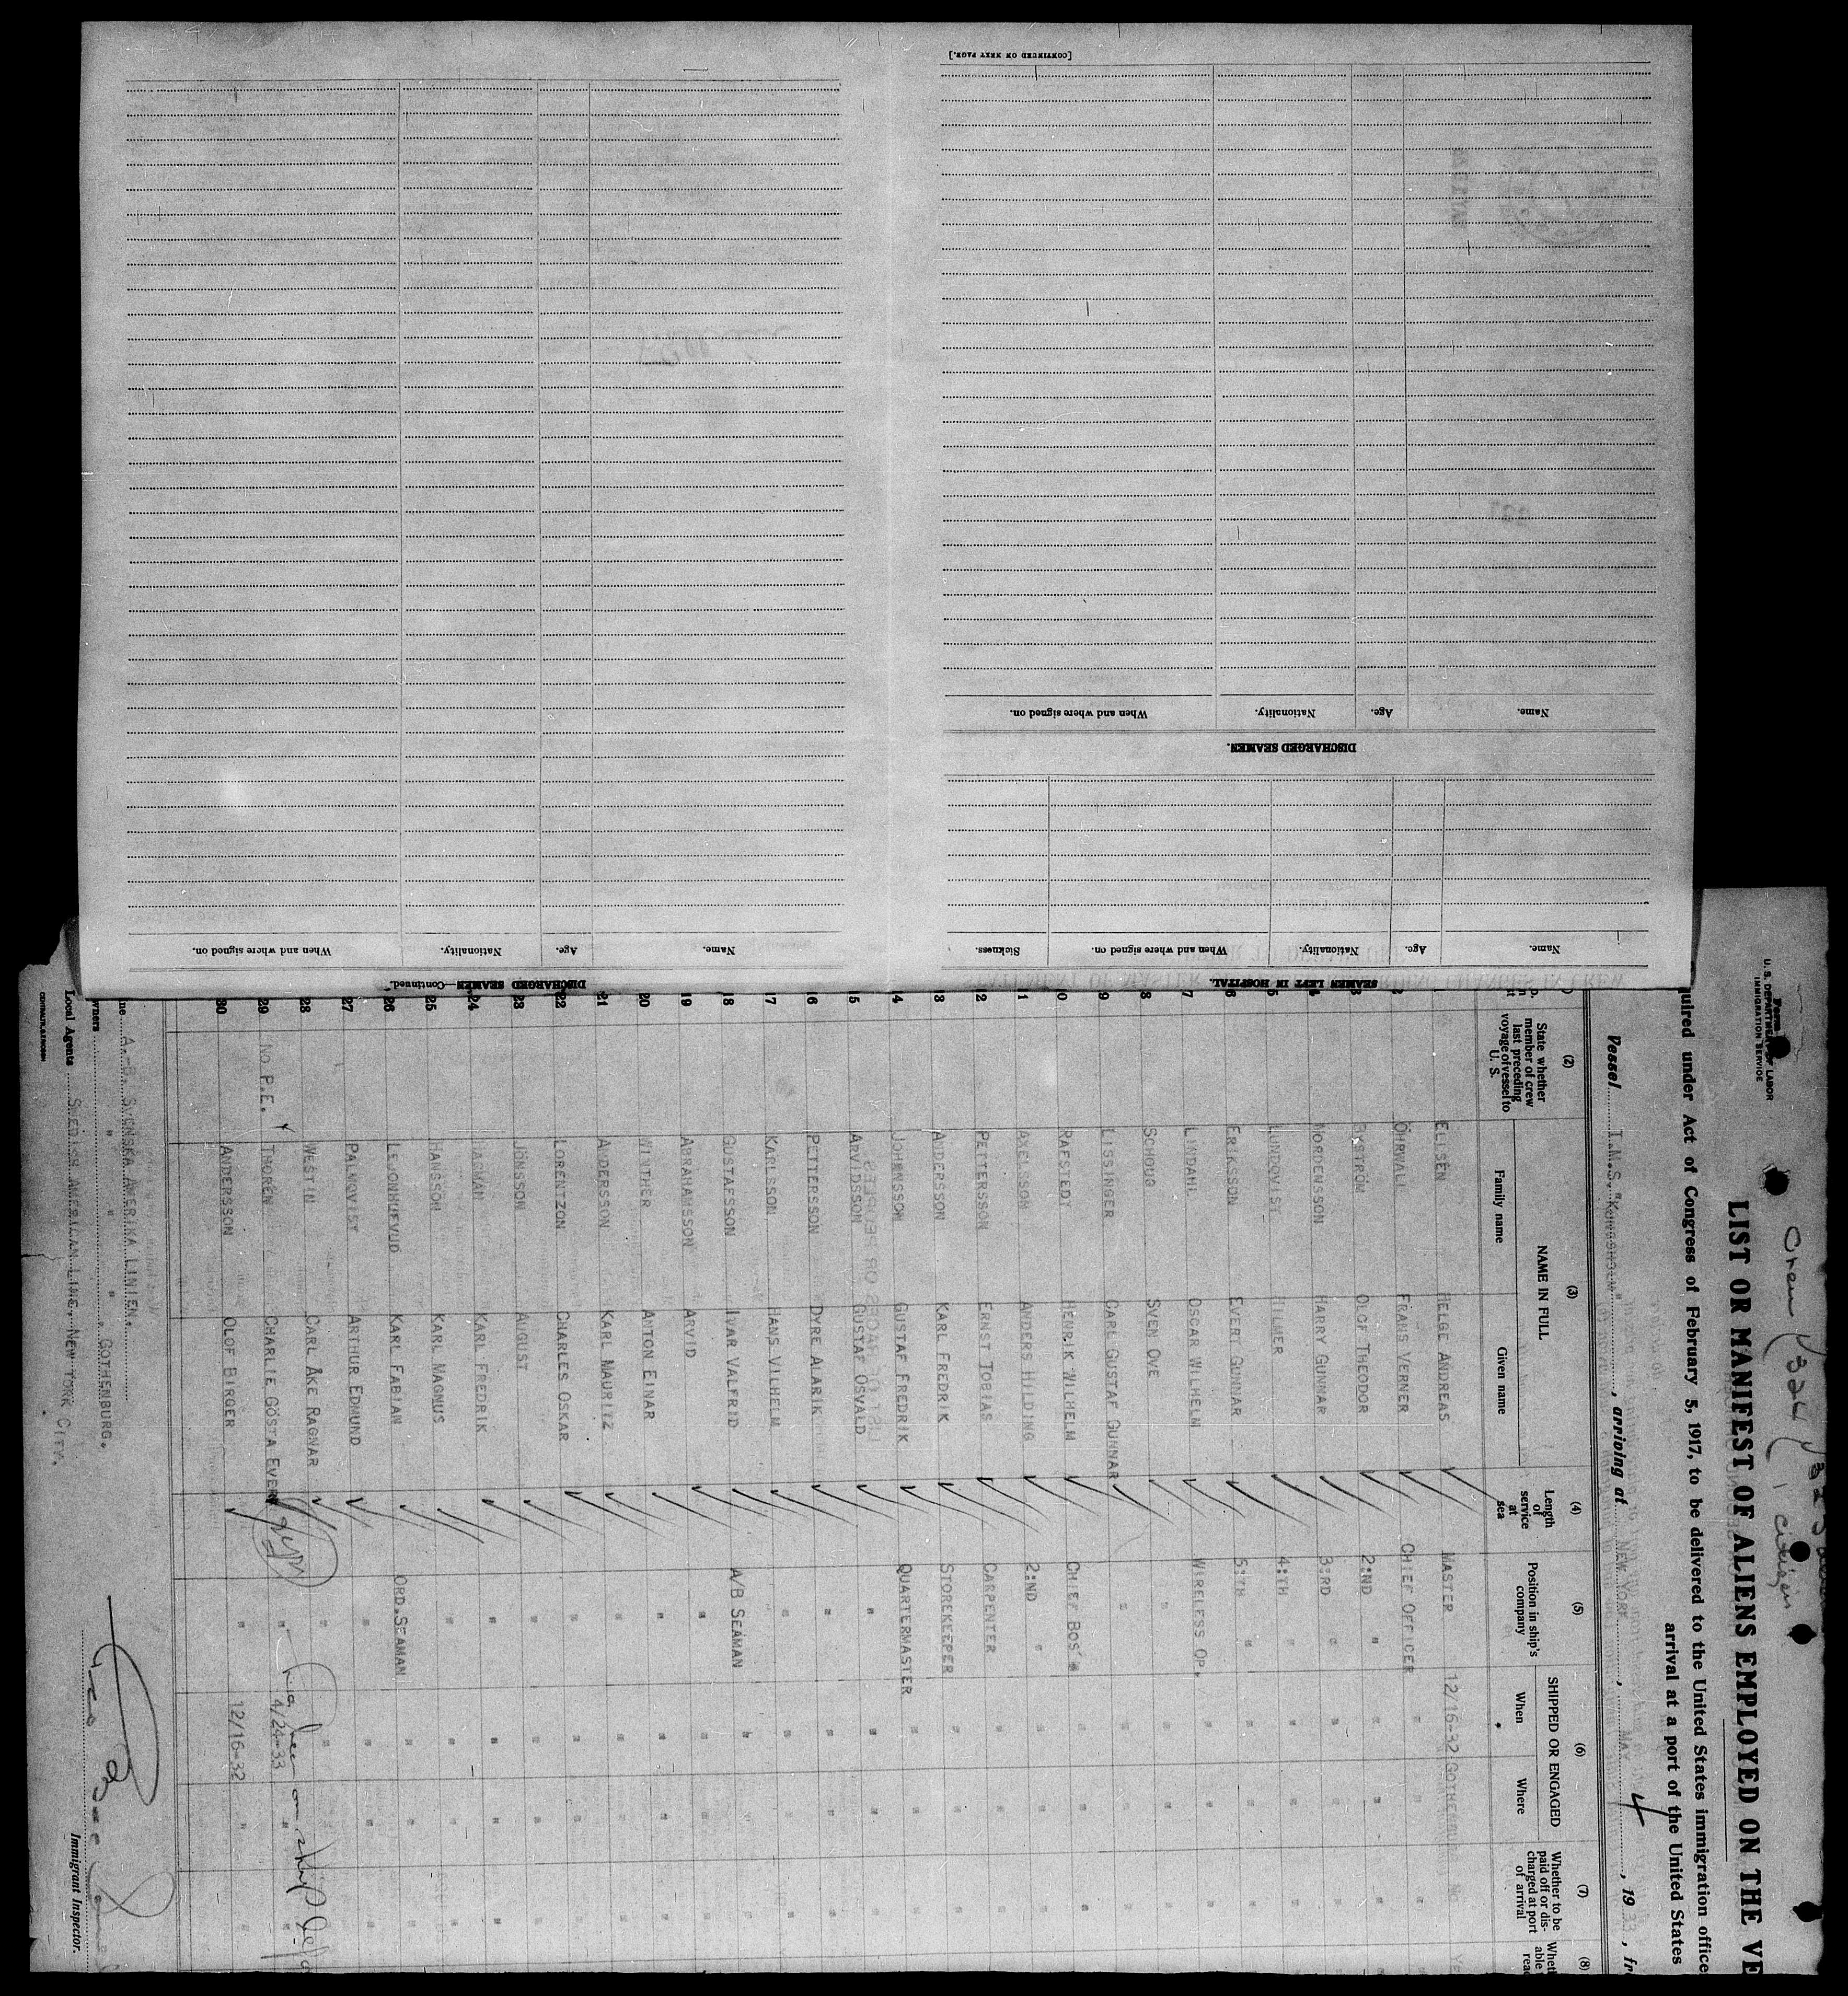 [CONTINUED ON NEXT PAGE.]
DISCHARGED SEAMEN.
Name. Age. Nationality. When and where signed on.
SEAMEN LEFT IN HOSPITAL.
Name. Age. Nationality. When and where signed on. Sickness.
DISCHARGED SEAMEN—Continued.
Name. Age. Nationality. When and where signed on.
U. S. DEPARTMENT OF LABOR
IMMIGRATION SERVICE
Crew 324
1 citizen
LIST OR MANIFEST OF ALIENS EMPLOYED ON THE VE
uired under Act of Congress of February 5, 1917, to be delivered to the United States immigration office
arrival at a port of the United States
Vessel T.M.S. "KUNGSHOLM", arriving at NEW YORK, MAY 4, 1933, fr
(2) (3) (4) (5) (6) (7) (8)
State whether member of crew last preceding voyage of vessel to U. S.
NAME IN FULL
Family name Given name
Length of service at sea
Position in ship's company
SHIPPED OR ENGAGED
When Where
Whether to be paid off or discharged at port of arrival
ELISEN HELGE ANDREAS MASTER 12/16-32 GOTHENBURG
2 ÖHRWALL FRANS VERNER CHIEF OFFICER " "
3 BYSTRÖM OLOF THEODOR 2:ND " " "
4 NORDENSSON HARRY GUNNAR 3:RD " " "
5 LUNDQVIST HILMER 4:TH " " "
6 ERIKSSON EVERT GUNNAR 5:TH " " "
7 LINDAHL OSCAR WILHELM WIRELESS OP. " "
8 SCHOUG SVEN OVE " " "
9 LISSINGER CARL GUSTAF GUNNAR " " "
10 RAFSTEDT HENRIK WILHELM CHIEF BOS' " "
11 AXELSSON ANDERS HILDING 2:ND " " "
12 PETTERSSON ERNST TOBIAS CARPENTER " "
13 ANDERSSON KARL FREDRIK STOREKEEPER " "
14 JOHANSSON GUSTAF FREDRIK QUARTERMASTER " "
15 ARVIDSSON GUSTAF OSVALD " " "
16 PETTERSON DYRE ALARIK " " "
17 KARLSSON HANS VILHELM " " "
18 GUSTAFSSON IVAR VALFRID A/B SEAMAN " "
19 ABRAHAMSSON ARVID " " "
20 WINTHER ANTON EINAR " " "
21 ANDERSSON KARL MAURITZ " " "
22 LORENTZON CHARLES OSKAR " " "
23 JÖNSSON AUGUST " " "
24 KARL FREDRIK " " "
25 HANSSON KARL MAGNUS " " "
26 LEJONHUFVUD KARL FABIAN ORD.SEAMAN " "
27 PALMQVIST ARTHUR EDMUND " " "
28 WESTIN CARL ÅKE RAGNAR " " "
29 NO P.E. THORÉN CHARLIE GÖSTA EVERT " 4/24-33 "
30 ANDERSSON OLOF BIRGER " 12/16-32 "
A.-B. SVENSKA AMERIKA LINIEN.
wners " " " GOTHENBURG.
Local Agents SWEDISH AMERICAN LINE, NEW YORK CITY.
Immigrant Inspector.